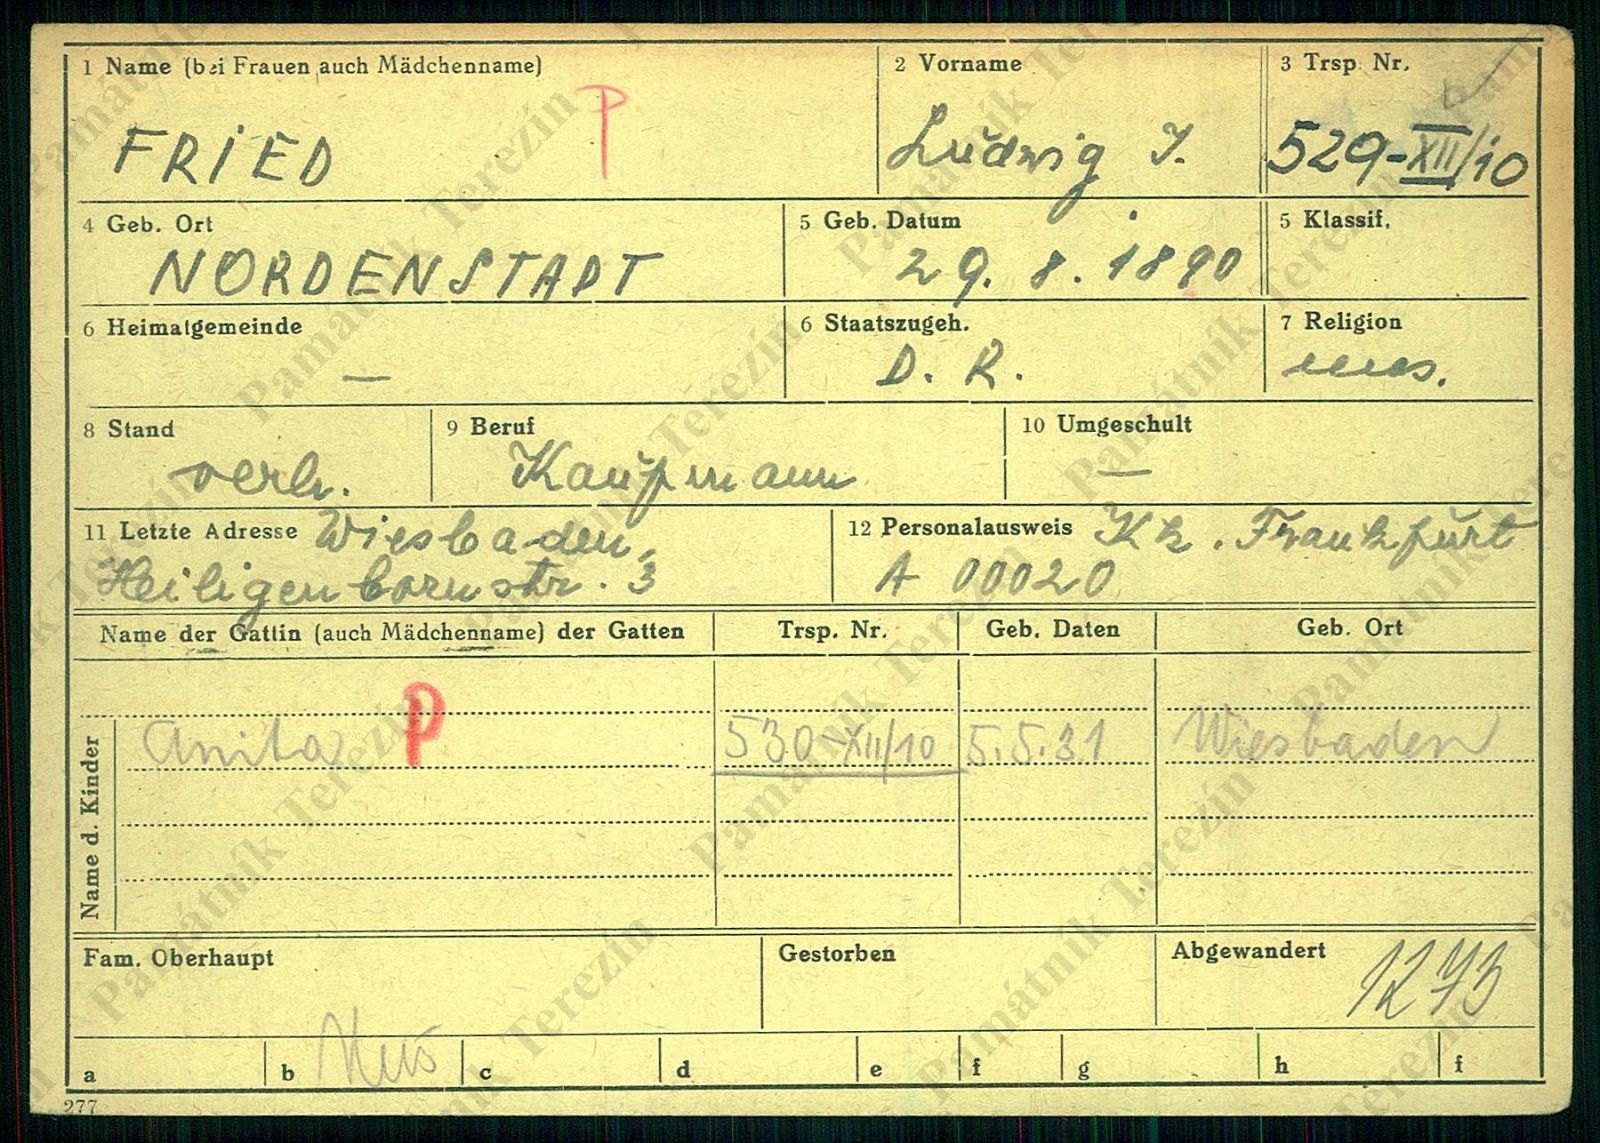 1 Name (bei Frauen auch Mädchenname)
P
2 Vorname
3 Trsp. Nr.
FRIED
Ludwig I.
529-XII/10
4 Geb. Ort
5 Geb. Datum
5 Klassif.
NORDENSTADT
29. 8. 1890
6 Heimatgemeinde
6 Staatszugeh.
7 Religion
—
D. R.
mos.
8 Stand
9 Beruf
10 Umgeschult
verh.
Kaufmann
—
11 Letzte Adresse Wiesbaden,
Heiligenbornstr. 3
12 Personalausweis Kk. Frankfurt
A 00020
Name der Gattin (auch Mädchenname) der Gatten
Trsp. Nr.
Geb. Daten
Geb. Ort
Name d. Kinder
Anita P
530-XII/10
5.5.31
Wiesbaden
Fam. Oberhaupt
Gestorben
Abgewandert
1273
a
b
c
d
e
f
g
h
f
277
Památník Terezín